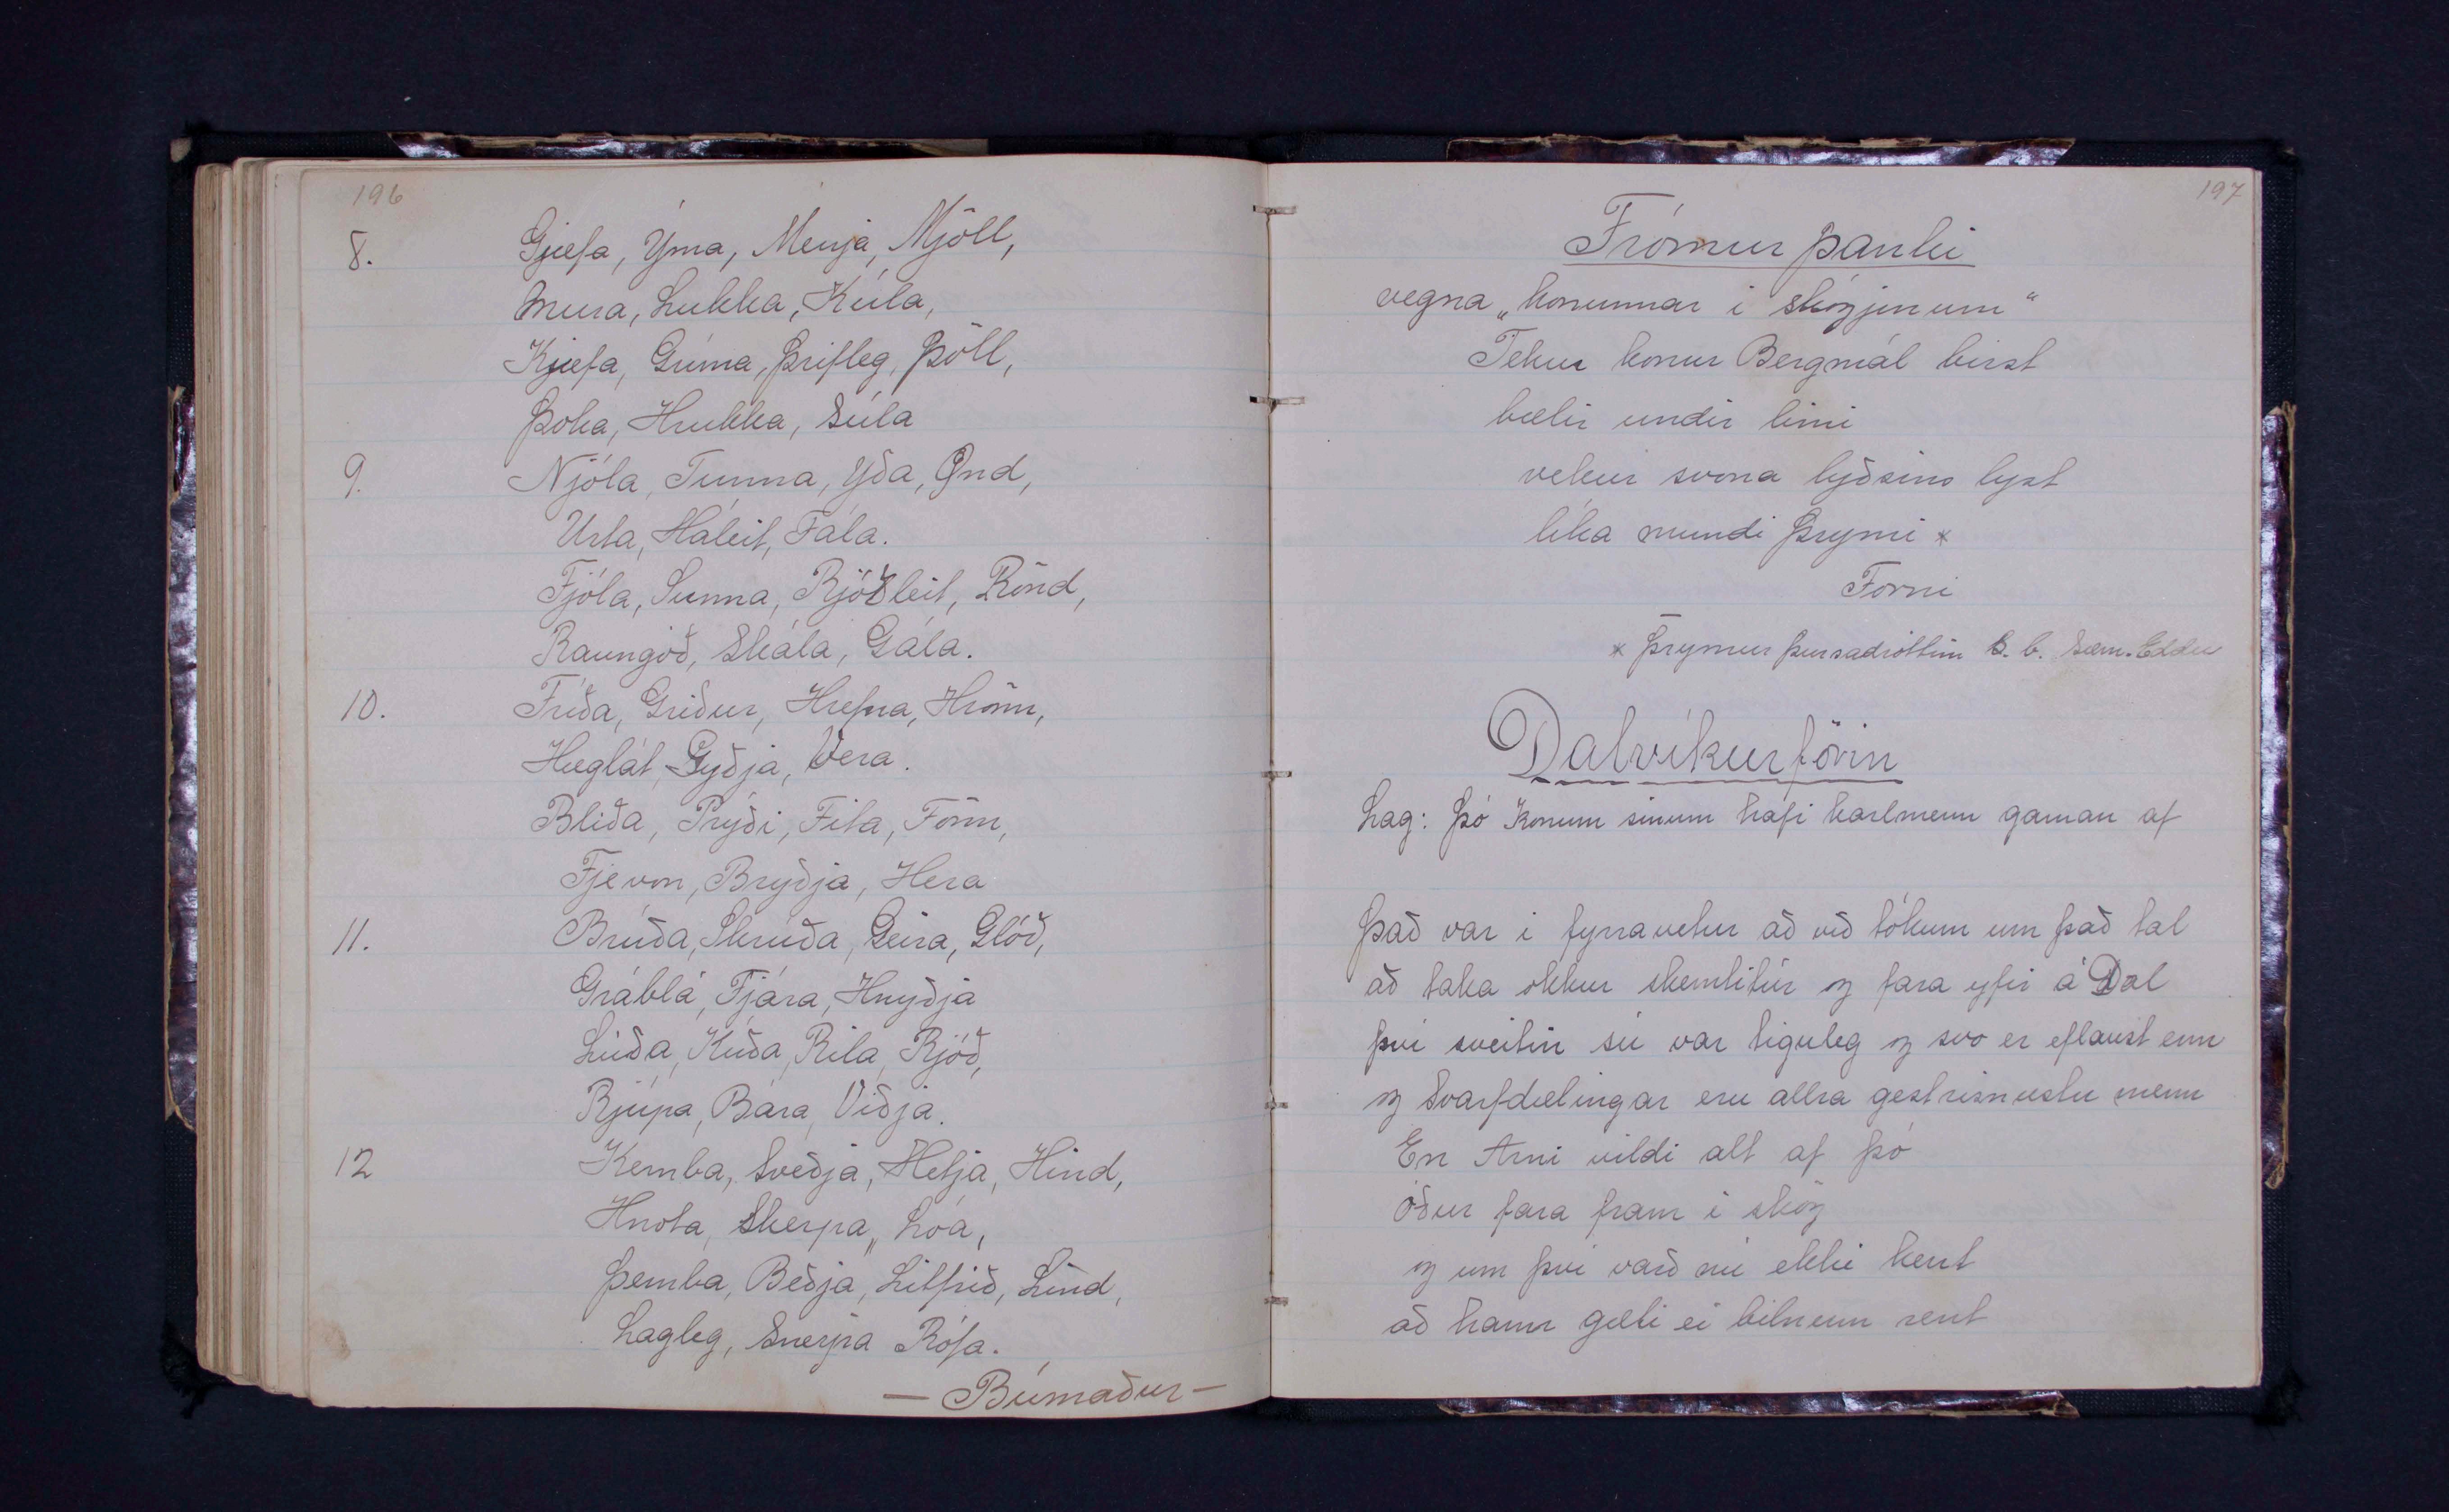 196
8. Gjæfa, Ýma, Menja, Mjöll,
Mura, Lukka, Kúla,
Kjæfa, Gríma, Þrifleg, Þöll,
Þoka, Hrukka, Súla
9. Njóla, Tunna, Yða, Önd,
Urta, Háleit, Fála.
Fjóla, Sunna, Rjóðleit, Rönd,
Raungóð, Skála, Gála.
10. Fríða, Gríður, Hrefna, Hrönn,
Hæglát, Gyðja, Vera.
Blíða, Prýði, Fita, Fönn,
Fjevon, Bryðja, Hera
11. Brúða, Skrúða, Geira, Glóð,
Gráblá, Fjára, Hnyðja
Lúða, Kúða, Rila, Rjóð,
Rjúpa, Bára, Viðja.
12 Kemba, Sveðja, Hetja, Hind,
Hnota, Skerpa, Lóa,
Þemba, Beðja, Litfríð, Lind,
Lagleg, Snerpa Rófa.
— Búmaður —
197
Frómur þanki
vegna „konunnar í skógjnum“
Tekur konur Bergmál birst
bælir undir limi
vekur svona lýðsins lyst
líka mundi Þrymi *
Forni
* Þrymur þursadróttin s.b. Sæm. Eddu
Dalvíkurförin
Lag: Þó Konum sínum hafi karlmenn gaman af
Það var í fyrravetur að við tókum um það tal
að taka okkur skemtitúr og fara yfir á Dal
því sveitin sú var tiguleg og svo er eflaust enn
og Svarfdælingar eru allra gestrisnustu menn
En Arni vildi alt af þó
óður fara fram í skóg
og um því varð nú ekki kent
að hann gæti ei bílnum rent